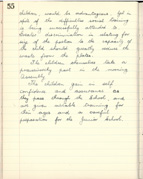 55
children would be advantageous but in
spite of the difficulties social training
is being successfully attended to.
Greater discrimination in asking for
size of the portion to the capacity of
the child should greatly reduce the
waste from the plates.
The children themselves take a
part in the morning
Assembly.
The children gain in self
confidence and assurance as
they pass through the School and
are given suitable training for
their ages and a careful
preparation for the Junior School.